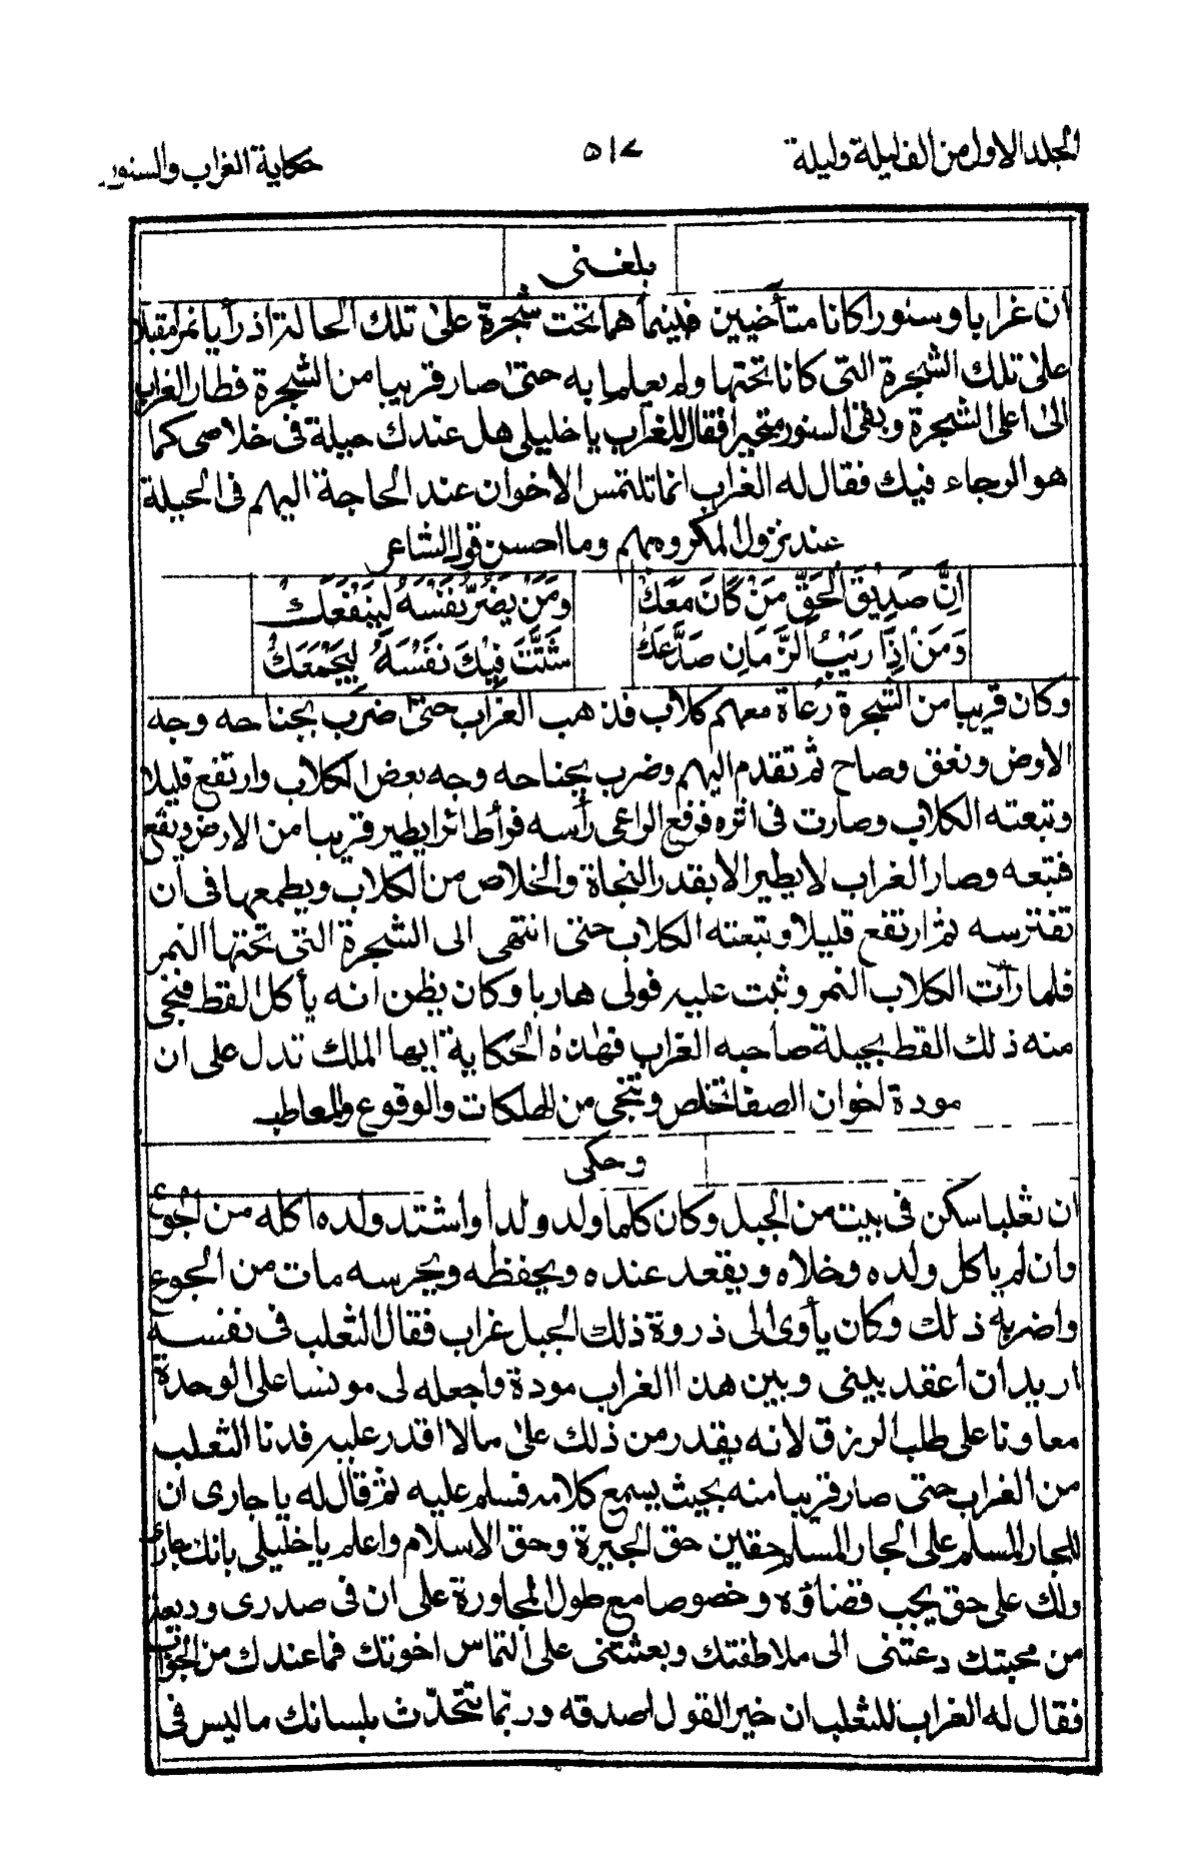 المجلد الاول من الف ليلة وليلة ٥١٧ حكاية الغراب والسنور
بلغنى
ان غرابا وسنورا كانا متأخيين فبينما هما تحت شجرة على تلك الحالة اذ رأيا نمرا مقبلا
على تلك الشجرة التى كانا تحتها ولم يعلما به حتى صار قريبا من الشجرة فطار الغراب
الى اعلى الشجرة وبقى السنور متحيرا فقال للغراب يا خليلى هل عندك حيلة فى خلاصى كما
هو الرجاء فيك فقال له الغراب انما تلتمس الاخوان عند الحاجة اليهم فى الحيلة
عند نزول المكروه بهم وما احسن قول الشاعر
اِنَّ صَدِيْقَ الْحَقِّ مَنْ كَانَ مَعَكْ وَمَنْ يَضُرُّ نَفْسَهُ لِيَنْفَعَكْ
وَمَنْ اِذَا رَيْبُ الزَّمَانِ صَدَّعَكْ شَتَّتَ فِيْكَ نَفْسَهُ لِيَجْمَعَكْ
وكان قريبا من الشجرة رعاة معهم كلاب فذهب الغراب حتى ضرب بجناحه وجه
الارض ونعق وصاح ثم تقدم اليهم وضرب بجناحه وجه بعض الكلاب وارتفع قليلا
وتبعته الكلاب وصارت فى اثره فرفع الراعى رأسه فرأى طائرا يطير قريبا من الارض ويقع
فتبعه وصار الغراب لا يطير الا بقدر النجاة والخلاص من الكلاب ويطمعها فى ان
تفترسه ثم ارتفع قليلا وتبعته الكلاب حتى انتهى الى الشجرة التى تحتها النمر
فلما رأت الكلاب النمر وثبت عليه فولى هاربا وكان يظن انه يأكل القط فنجى
منه ذلك القط بحيلة صاحبه الغراب فهذه الحكاية ايها الملك تدل على ان
مودة اخوان الصفا تخلص وتنجى من الهلكات والوقوع والمعاطب
وحكى
ان ثعلبا سكن فى بيت من الجبل وكان كلما ولد ولدا واشتد ولده اكله من الجوع
وان لم ياكل ولده وخلاه ويقعد عنده ويحفظه ويحرسه مات من الجوع
واضر به ذلك وكان يأوى الى ذروة ذلك الجبل غراب فقال الثعلب فى نفسه
اريد ان اعقد بينى وبين هذا الغراب مودة واجعله لى مونسا على الوحدة
معاونا على طلب الرزق لانه يقدر من ذلك على ما لا اقدر عليه فدنا الثعلب
من الغراب حتى صار قريبا منه بحيث يسمع كلامه فسلم عليه ثم قال له يا جارى ان
للجار المسلم على الجار المسلم حقين حق الجيرة وحق الاسلام واعلم يا خليلى بانك جارى
ولك على حق يجب قضاؤه وخصوصا مع طول المجاورة على ان فى صدرى وديعة
من محبتك دعتنى الى ملاطفتك وبعثتنى على التماس اخوتك فما عندك من الجواب
فقال له الغراب للثعلب ان خير القول اصدقه وربّما تتحدّث بلسانك ما ليس فى